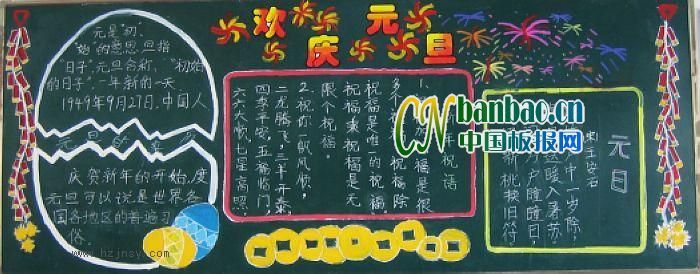 欢庆元旦
元是"初"、
"始"的意思,旦指
"日子",元旦合称,"初始
的日子",一年新的一天。
1949年9月27日,中国人
庆贺新年的开始,度
元旦可以说是世界各
国各地区的普遍习
俗。
年祝语
福是很
多个
祝福除
祝福是唯一的祝福
祝福乘祝福是无
限个祝福。
2.祝你一帆风顺,
二龙腾飞,三羊开泰,
四季平安,五福临门,
六六大顺,七星高照.
元日
宋王安石
中一岁除,
暖入屠苏
户曈曈日,
新桃换旧符
CNbanbao.cn
中国板报网
www.hzjnsy.com